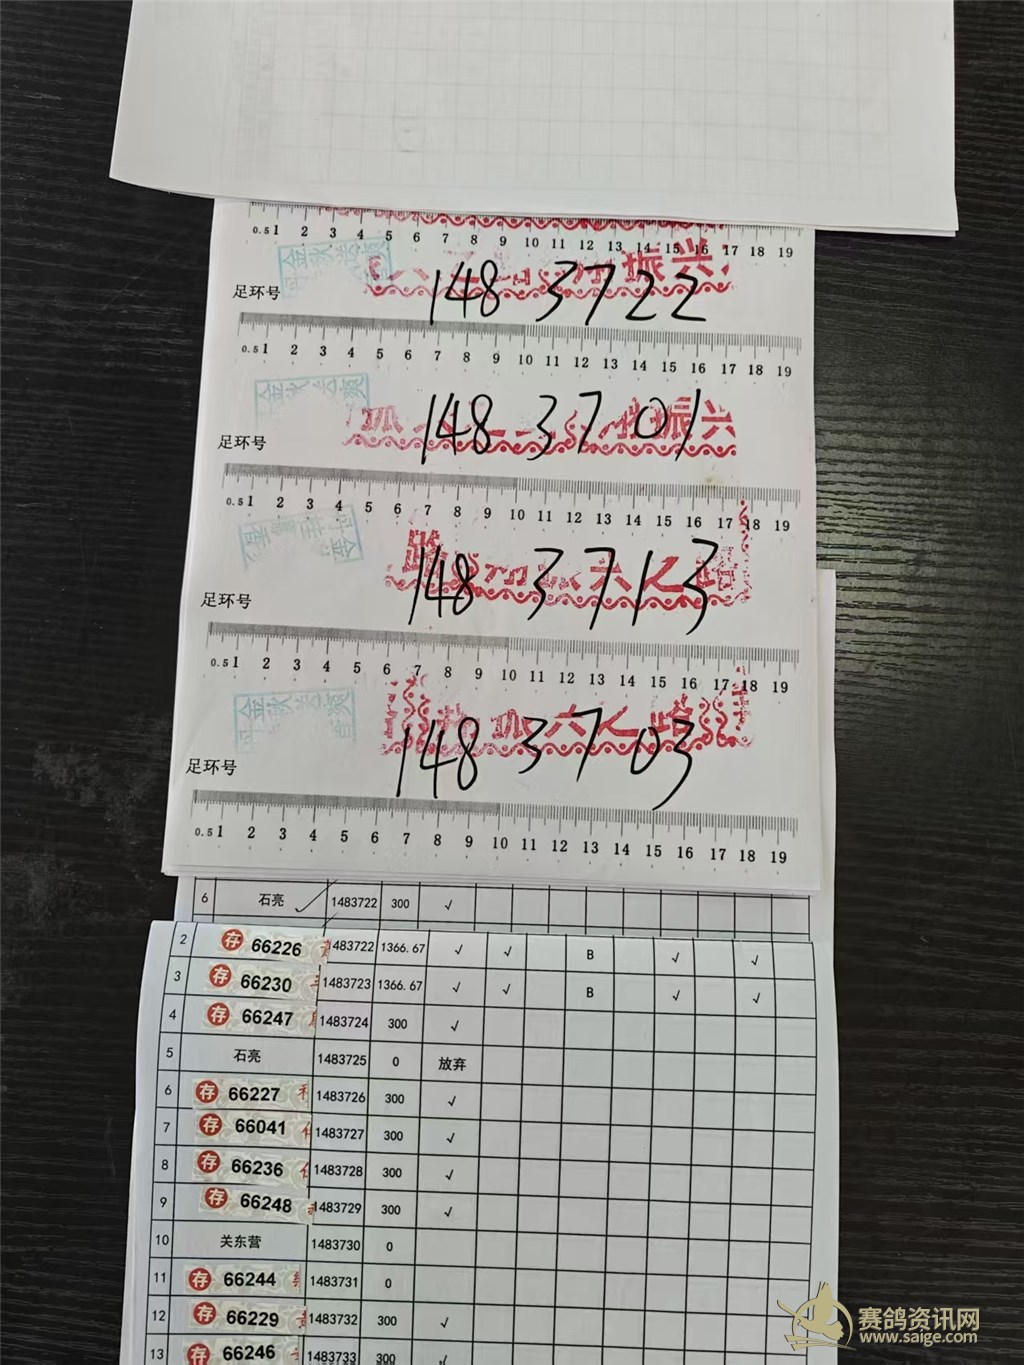 0.5 1 2 3 4 5 6 7 8 9 10 11 12 13 14 15 16 17 18 19
振兴
足环号 148 3722
0.5 1 2 3 4 5 6 7 8 9 10 11 12 13 14 15 16 17 18 19
振兴
足环号 148 3701
0.5 1 2 3 4 5 6 7 8 9 10 11 12 13 14 15 16 17 18 19
足环号 148 3713
0.5 1 2 3 4 5 6 7 8 9 10 11 12 13 14 15 16 17 18 19
足环号 148 3703
0.5 1 2 3 4 5 6 7 8 9 10 11 12 13 14 15 16 17 18 19
6 石亮 1483722 300 √
2 存 66226 1483722 1366.67 √ √ B √ √
3 存 66230 1483723 1366.67 √ √ B √ √
4 存 66247 1483724 300 √
5 石亮 1483725 0 放弃
6 存 66227 1483726 300 √
7 存 66041 1483727 300 √
8 存 66236 1483728 300 √
9 存 66248 1483729 300 √
10 关东营 1483730 0
11 存 66244 1483731 0
12 存 66229 1483732 300 √
13 存 66246 1483733 300 √
赛鸽资讯网
www.saige.com